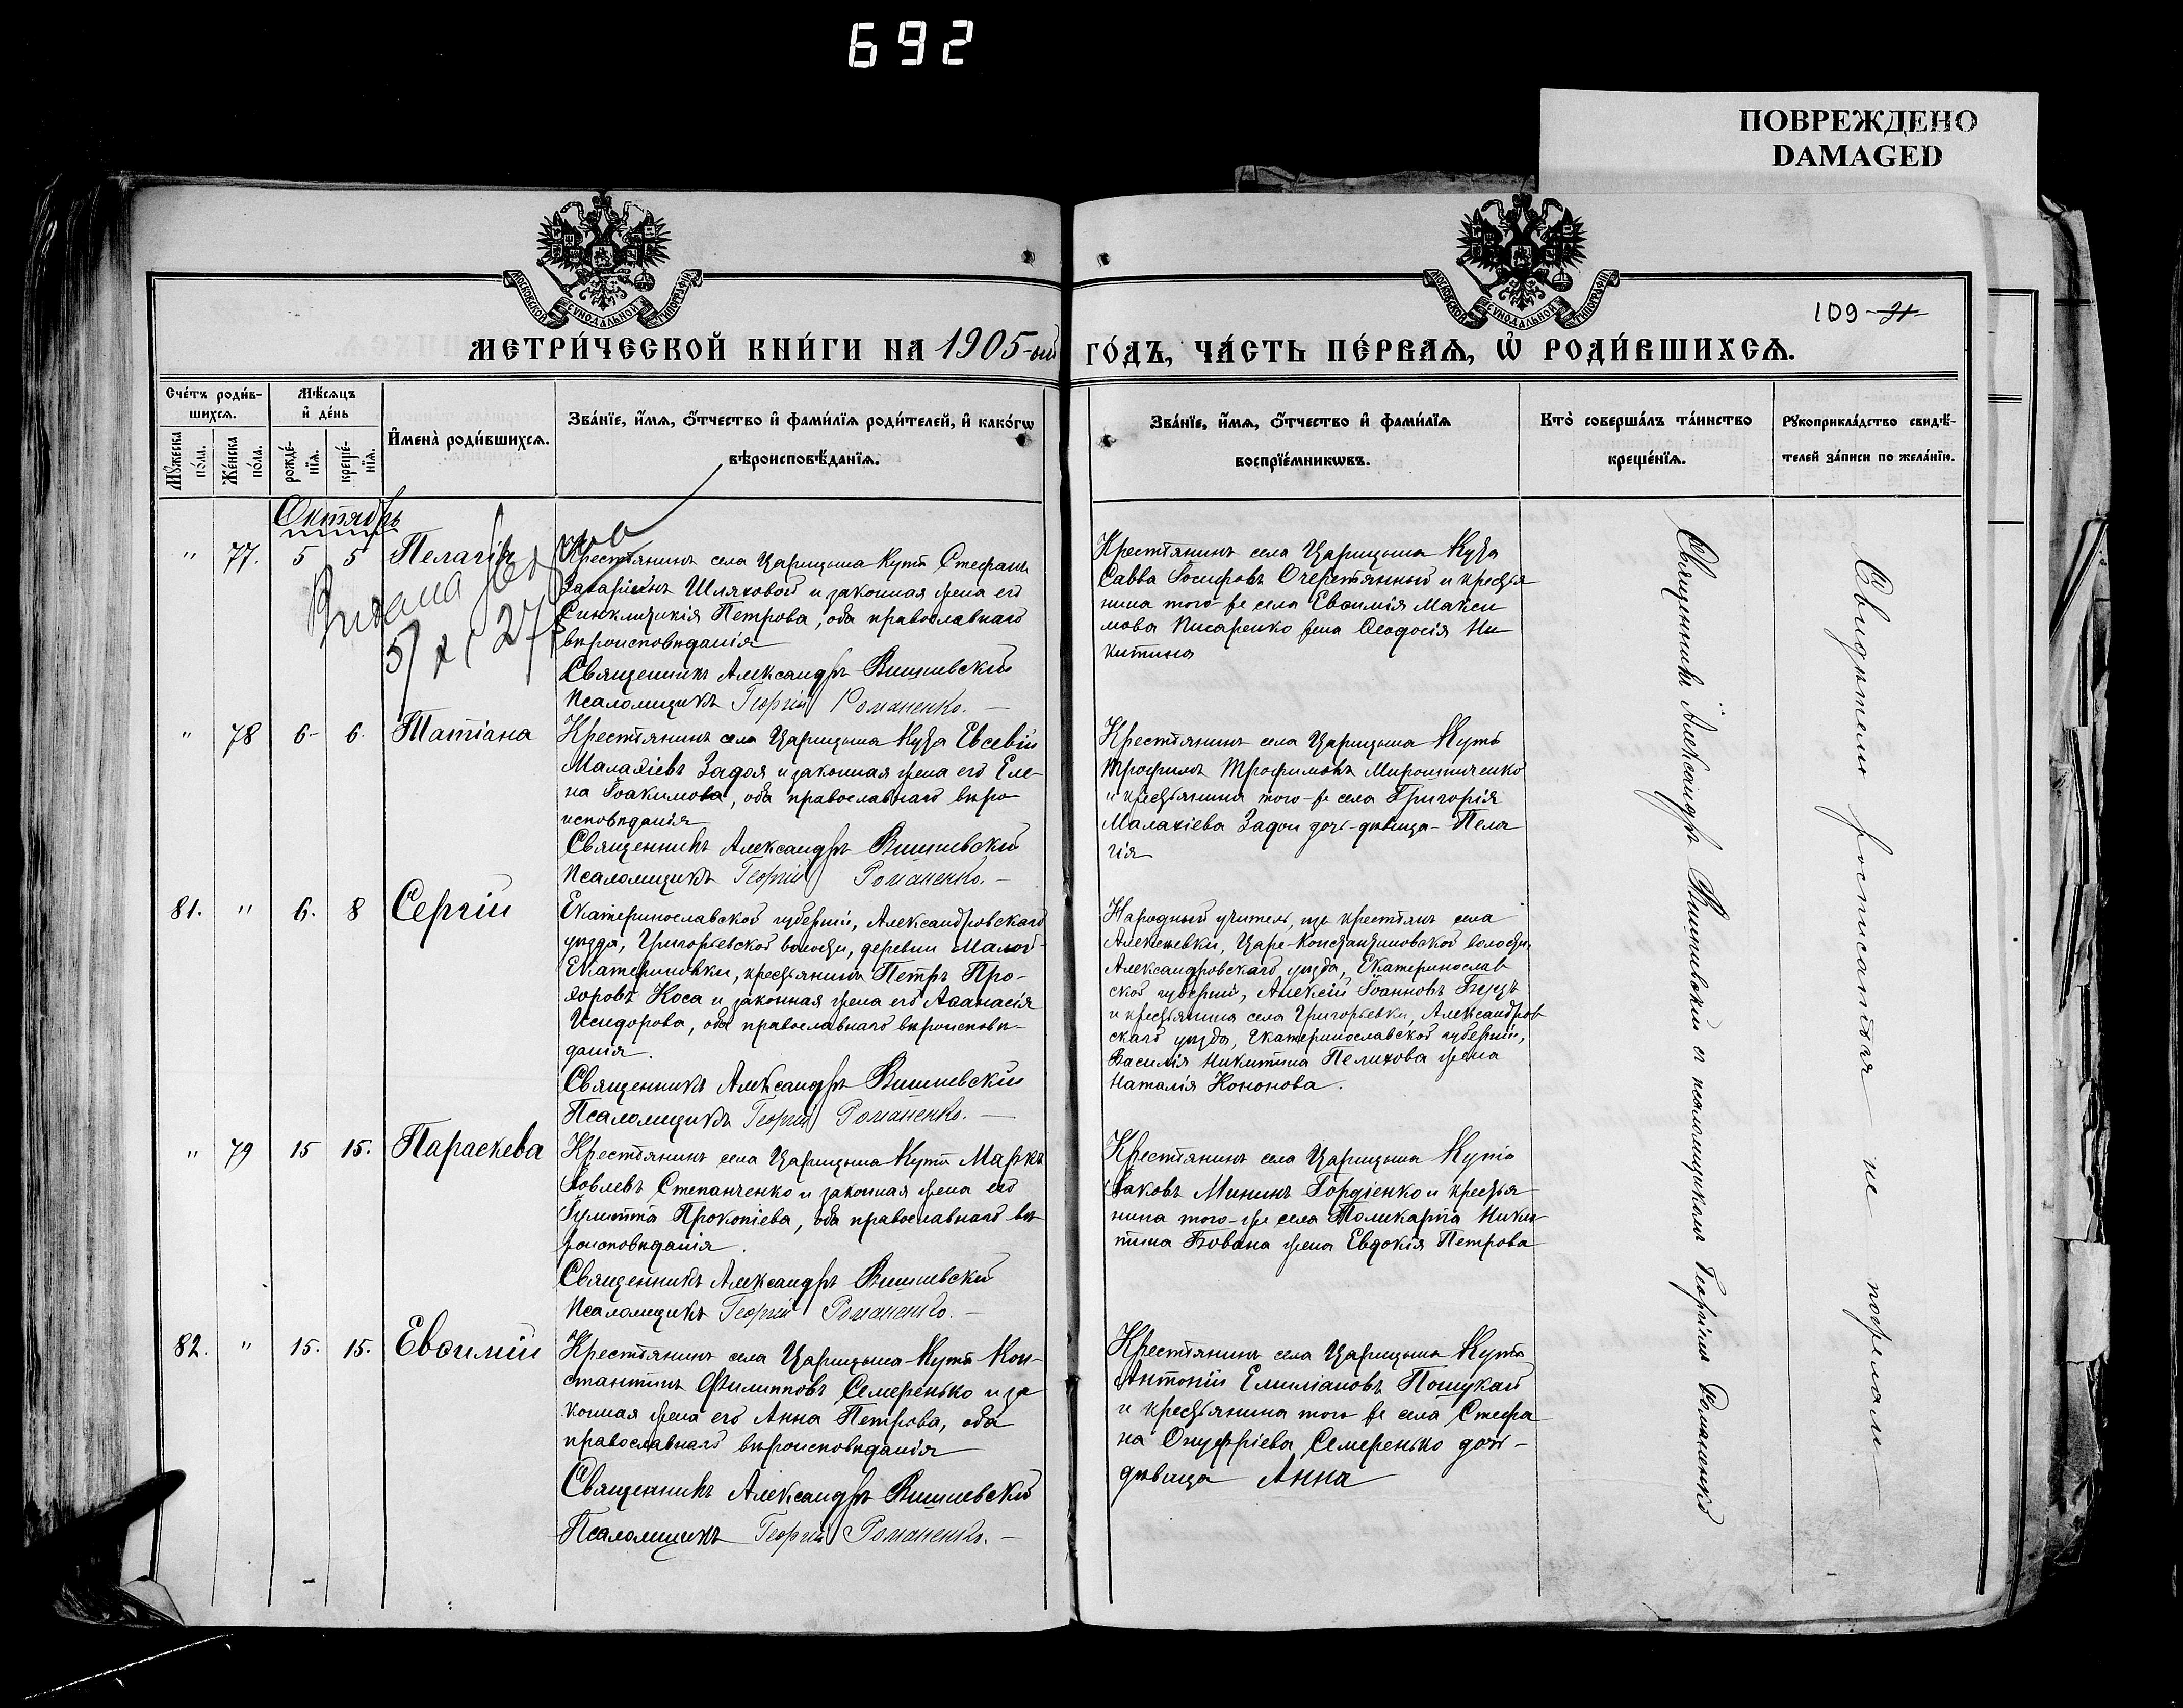 692
ПОВРЕЖДЕНО
DAMAGED
МОСКОВСКОЙ СѴНОДАЛЬНОЙ ТИПОГРАФІИ
МОСКОВСКОЙ СѴНОДАЛЬНОЙ ТИПОГРАФІИ
109
МЕТРИ́ЧЕСКОЙ КНИ́ГИ НА 1905-ый ГО́ДЪ, ЧА́СТЬ ПЕ́РВАѦ, Ѡ҆ РОДИ́ВШИХСѦ.
Сче́тъ роди́в-
шихсѧ.
Мѣ́сѧцъ
и҆ де́нь
Мꙋ́жеска
по́ла.
Же́нска
по́ла.
рожде́-
нїѧ.
креще́-
нїѧ.
И҆мена̀ роди́вшихсѧ.
Зва́нїе, и҆́мѧ, ѻ҆́тчество и҆ фами́лїѧ роди́телей, и҆ како́гѡ
вѣроисповѣ́данїѧ.
Зва́нїе, и҆́мѧ, ѻ҆́тчество и҆ фами́лїѧ
воспрїе́мникѡвъ.
Кто̀ соверша́лъ та́инство
креще́нїѧ.
Рꙋкоприкла́дство свидѣ́-
телей за́писи по жела́нїю.
Октябрь
" 77. 5 5 Пелагія
Крестьянинъ села Царицына Кута Стефанъ
Захаріинъ Шляховой и законная жена его
Синклитикія Петрова, оба православнаго
вѣроисповѣданія
Священникъ Александръ Вишневскій
Псаломщикъ Георгій Романенко.
Крестьянинъ села Царицына Кута
Савва Іосифовъ Очеретянный и крестья
нина того-же села Евѳимія Макси
мова Писаренко жена Ѳеодосія Ни
китина
" 78 6 6. Татіана
Крестьянинъ села Царицына Кута Евсевій
Малахіевъ Задоя и законная жена его Еле-
на Іоакимова, оба православнаго вѣро
исповѣданія
Священникъ Александръ Вишневскій
Псаломщикъ Георгій Романенко.
Крестьянинъ села Царицына Кута
Трофимъ Трофимовъ Мирошниченко
и крестьянина того-же села Григорія
Малахіева Задои дочь-дѣвица-Пела
гія
81. " 6. 8 Сергій
Екатеринославской губерніи, Александровскаго
уѣзда, Григорьевской волости, деревни Малой-
Екатериновки, крестьянинъ Петръ Про-
хоровъ Коса и законная жена его Аѳанасія
Исидорова, оба православнаго вѣроисповѣ-
данія.
Священникъ Александръ Вишневскій
Псаломщикъ Георгій Романенко.
Народный учитель, изъ крестьянъ села
Алексѣевки, Царе-Константиновской волости,
Александровскаго уѣзда, Екатеринослав
ской губерніи, Алексій Іоанновъ
и крестьянина села Григорьевки, Александров
скаго уѣзда, Екатеринославской губерніи,
Василія Никитина Пелихова жена
Наталія Кононова.
" 79 15 15. Параскева
Крестьянинъ села Царицына Кута Маркъ
Яковлевъ Степанченко и законная жена его
Іулитта Прокопіева, оба православнаго вѣ
роисповѣданія.
Священникъ Александръ Вишневскій
Псаломщикъ Георгій Романенко.
Крестьянинъ села Царицына Кута
Іаковъ Мининъ Гордіенко и крестья
нина того-же села Поликарпа Ники
тина Бована жена Евдокія Петрова
82. " 15. 15. Евѳимій
Крестьянинъ села Царицына-Кута Кон-
стантинъ Филипповъ Семеренько и за
конная жена его Анна Петрова, оба
православнаго вѣроисповѣданія
Священникъ Александръ Вишневскій
Псаломщикъ Георгій Романенко.
Крестьянинъ села Царицына Кута
Антоній Емиліановъ Пошукай
и крестьянина того же села Стефа
на Онуфріева Семеренько дочь-
дѣвица Анна
Священникъ Александръ Вишневскій съ псаломщикомъ Георгіемъ Романенко
Свидѣтели росписаться не пожелали